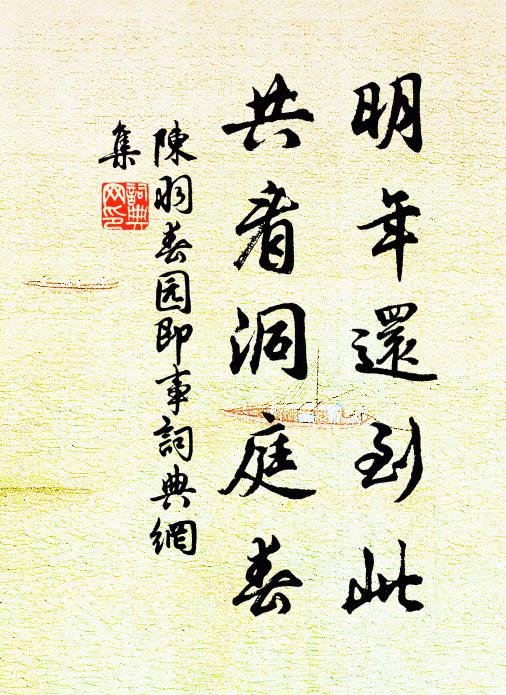 明年還到此
共看洞庭春
陳羽春园即事詞典網
集
詞典
网印